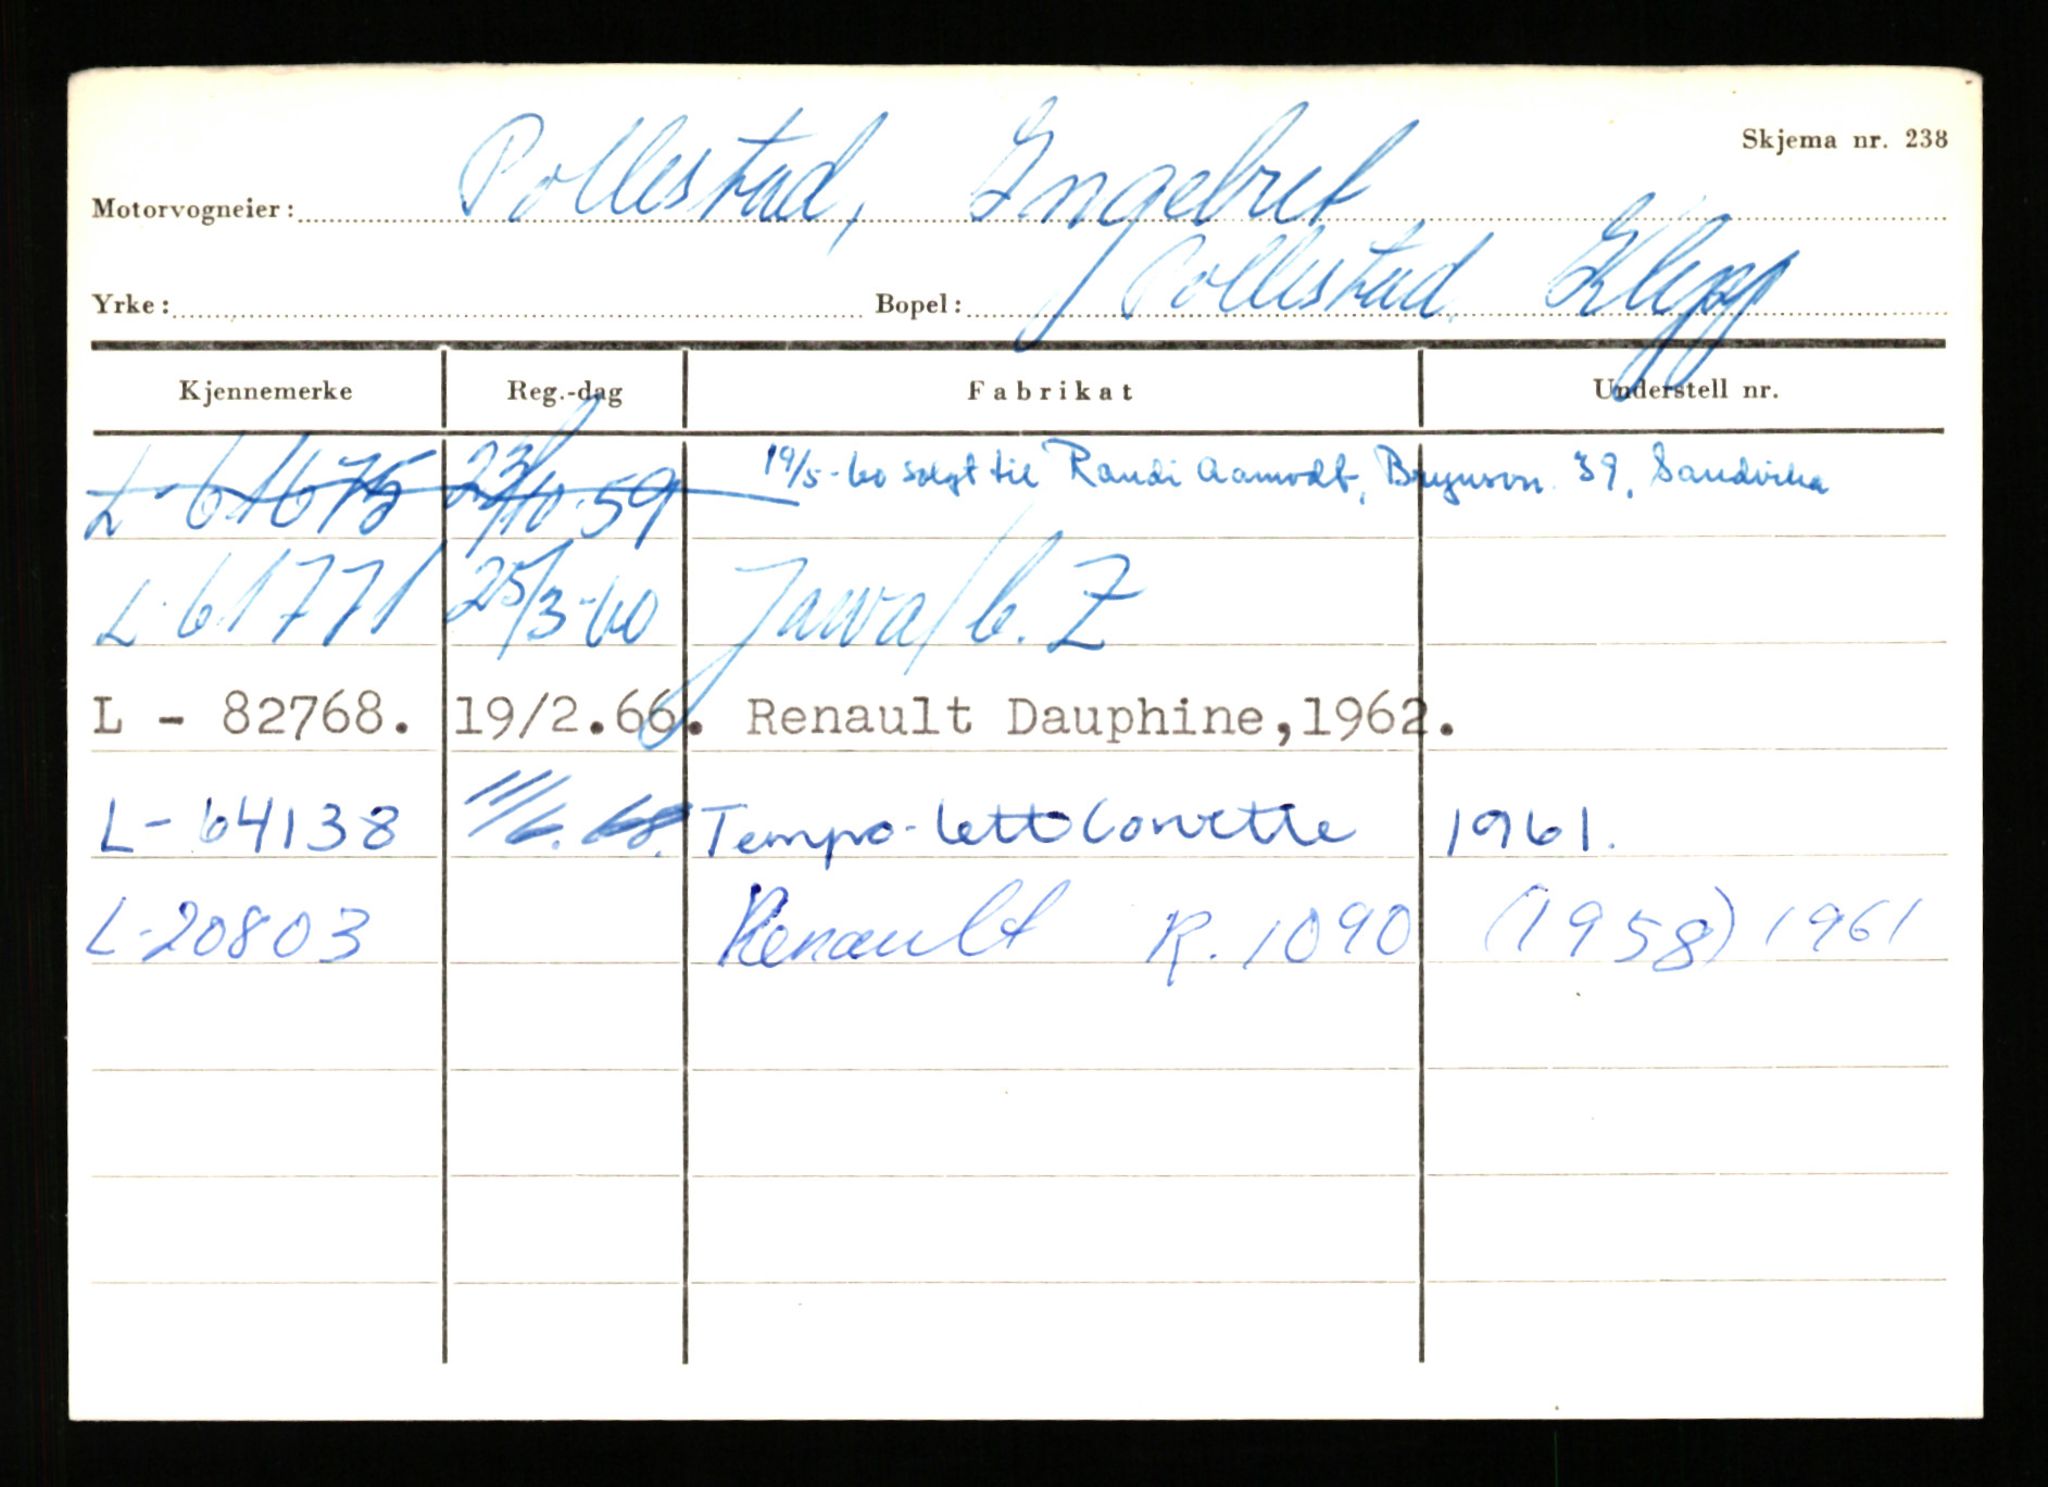 Skjema nr. 238
Motorvogneier: Pollestad, Ingebret
Yrke: Bopel: Pollestad. Klepp
Kjennemerke Reg.-dag Fabrikat Understell nr.
L-61675 23/10-59 19/5-60 solgt til Randi Aamodt, 39, Sandvika
L-61771 25/3-60 Jawa/C.Z
L - 82768. 19/2.66. Renault Dauphine,1962.
L-64138 11/6.68. Tempo-lett Corvette 1961.
L-20803 Renault R.1090 (1958) 1961